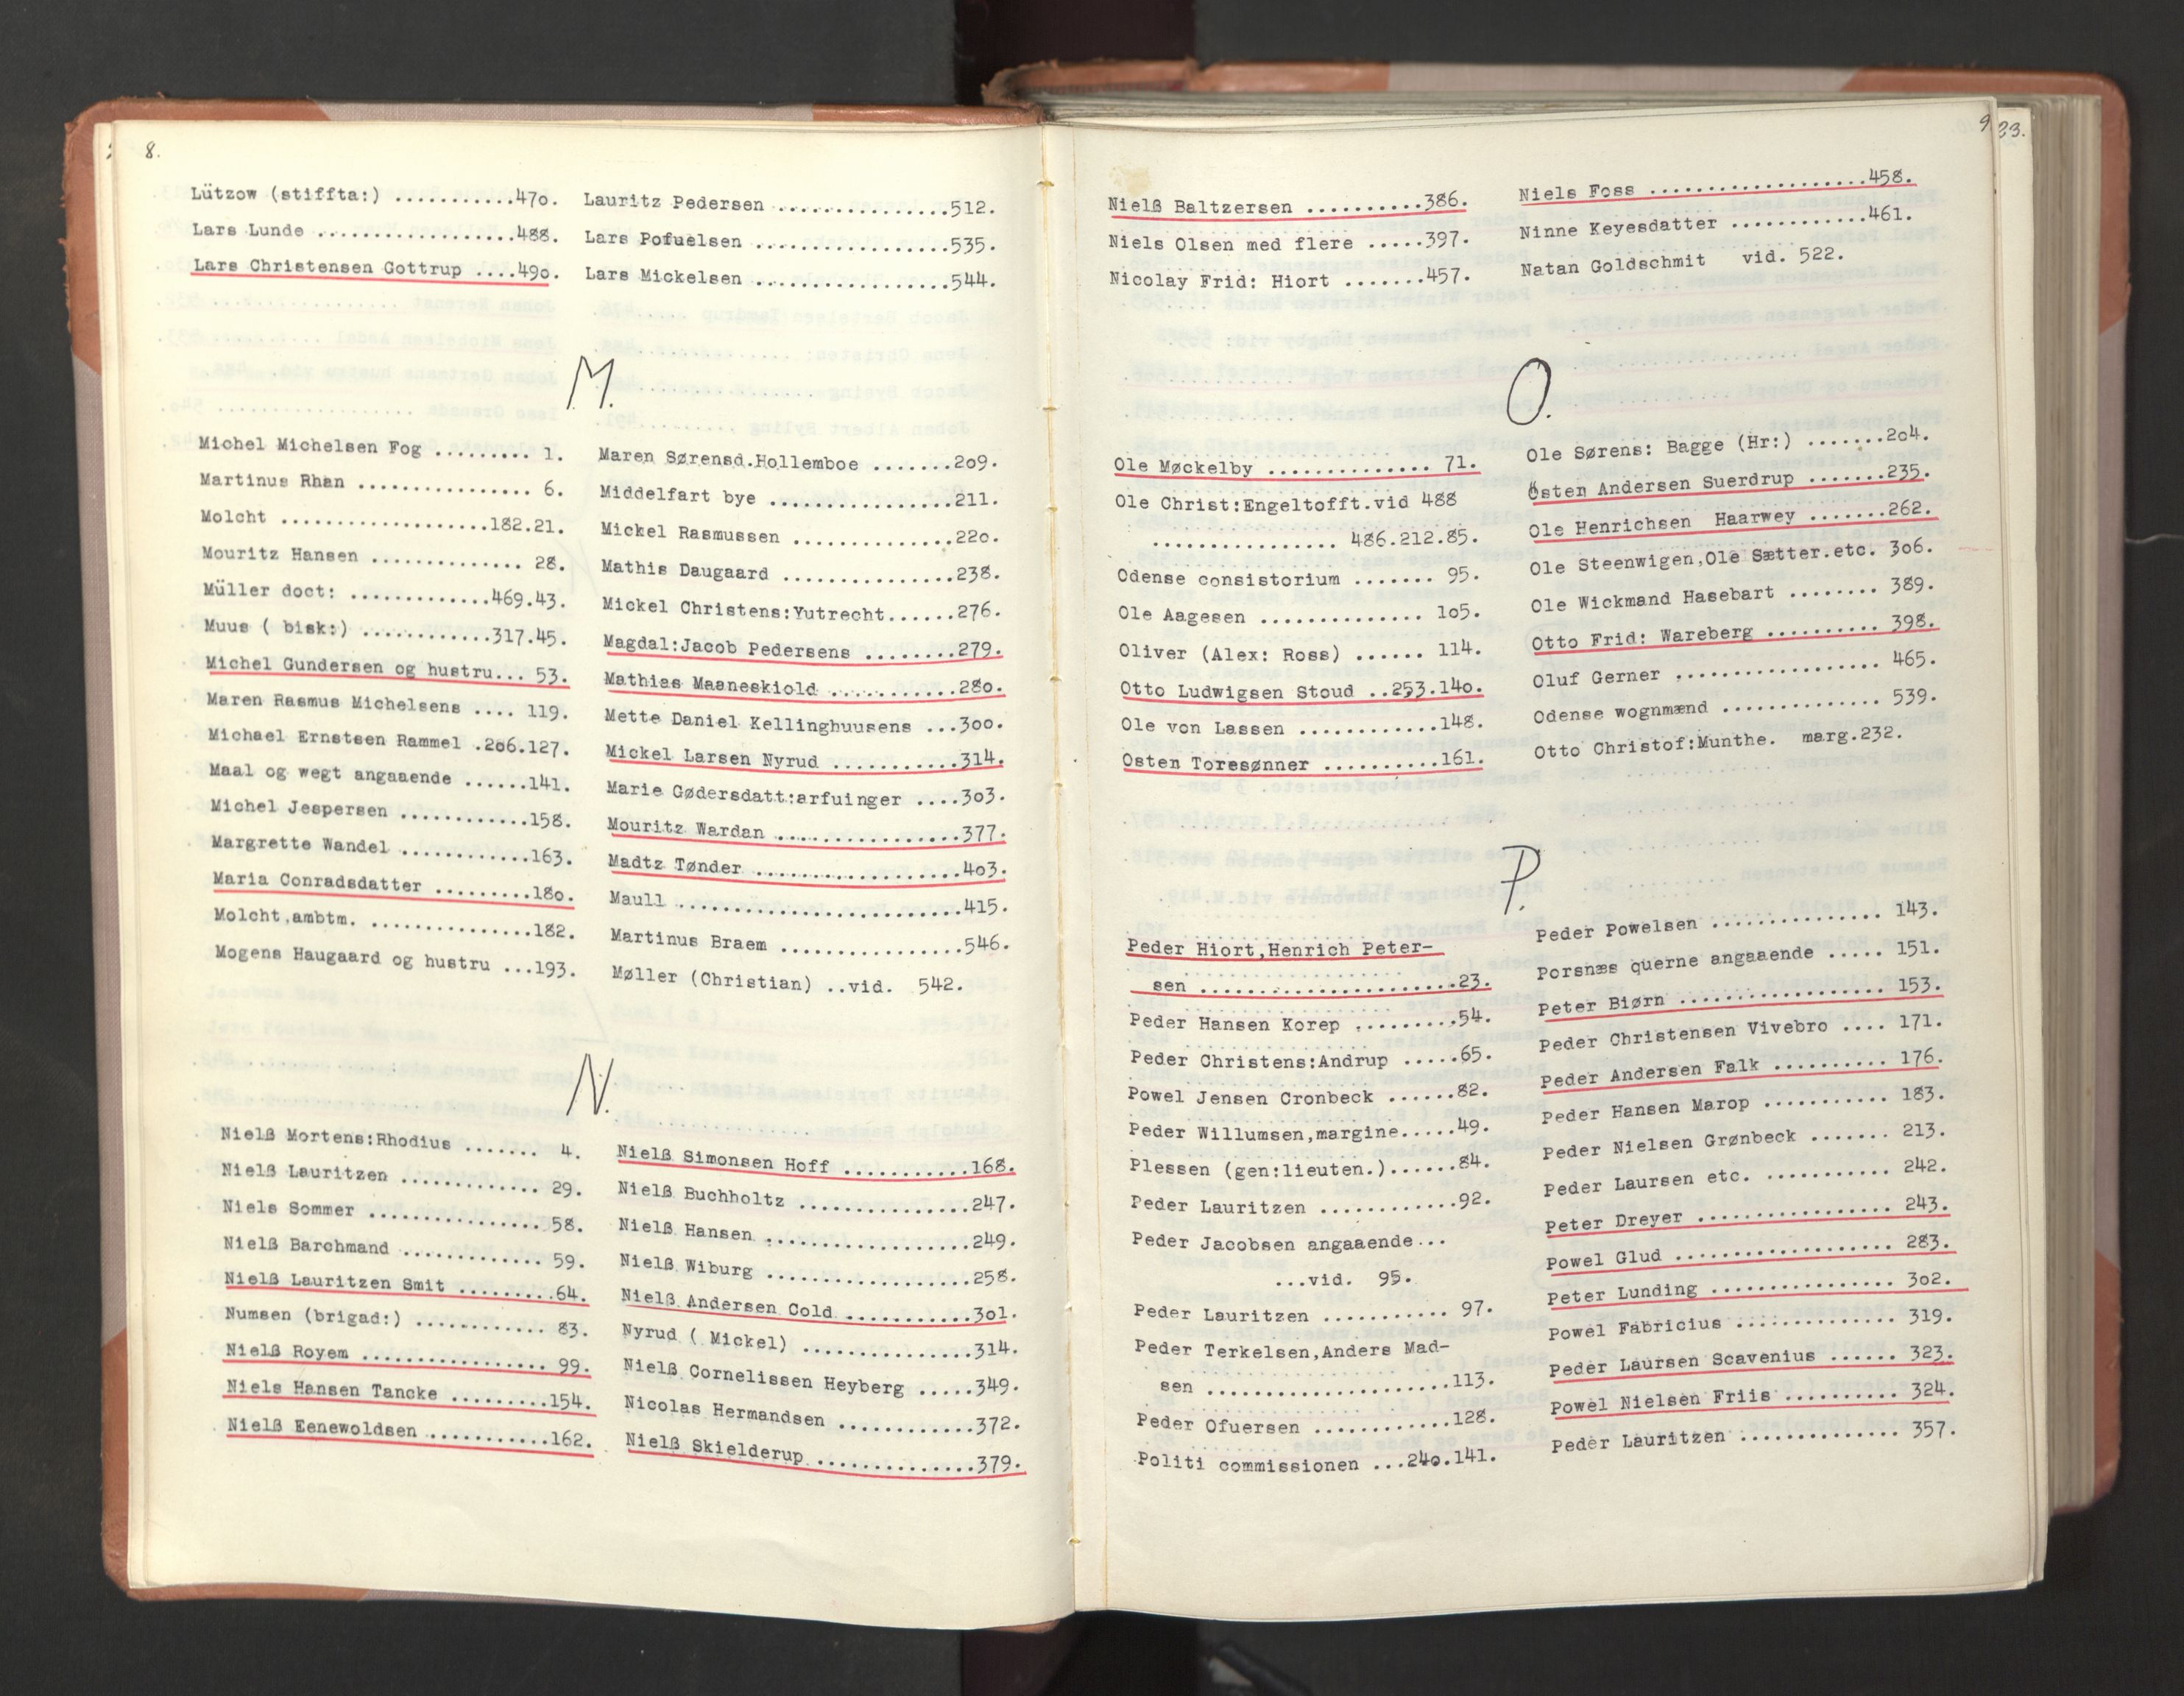 8.
Lützow (stiffta:) ...........470.
Lars Lunde ..................488.
Lars Christensen Gottrup ....490.
Lauritz Pedersen ................512.
Lars Pofuelsen ..................535.
Lars Mickelsen ..................544.
M.
Michel Michelsen Fog ......... 1.
Martinus Rhan ................ 6.
Molcht ...................182.21.
Mouritz Hansen .............. 28.
Müller doct: .............469.43.
Muus ( bisk:) ............317.45.
Michel Gundersen og hustru... 53.
Maren Rasmus Michelsens .... 119.
Michael Ernstsen Rammel .206.127.
Maal og wegt angaaende ......141.
Michel Jespersen ............158.
Margrette Wandel ............163.
Maria Conradsdatter .........180.
Molcht,ambtm. ...............182.
Mogens Haugaard og hustru ...193.
Maren Sørensd.Hollemboe .......209.
Middelfart bye .................211.
Mickel Rasmussen ..............220.
Mathis Daugaard ................238.
Mickel Christens:Yutrecht......276.
Magdal:Jacob Pedersens ........279.
Mathias Maaneskiold ............280.
Mette Daniel Kellinghuusens ...300.
Mickel Larsen Nyrud ............314.
Marie Gødersdatt:arfuinger ....303.
Mouritz Wardan .................377.
Madtz Tønder ...................403.
Maull ..........................415.
Martinus Braem .................546.
Møller (Christian) ..vid. 542.
N.
Nielß Mortens:Rhodius ....... 4.
Nielß Lauritzen ............. 29.
Niels Sommer .................58.
Nielß Barchmand ............. 59.
Nielß Lauritzen Smit .........64.
Numsen (brigad:) ............ 83.
Nielß Royem ................. 99.
Niels Hansen Tancke .........154.
Nielß Eenewoldsen ...........162.
Nielß Simonsen Hoff ............168.
Nielß Buchholtz ................247.
Nielß Hansen ...................249.
Nielß Wiburg ...................258.
Nielß Andersen Cold ............301.
Nyrud ( Mickel) ................314.
Nielß Cornelissen Heyberg .....349.
Nicolas Hermandsen ............372.
Nielß Skielderup ...............379.
9.
23.
Nielß Baltzersen ...........386.
Niels Olsen med flere .....397.
Nicolay Frid: Hiort ........457.
Niels Foss ....................458.
Ninne Keyesdatter .............461.
Natan Goldschmit vid. 522.
O.
Ole Møckelby ............... 71.
Ole Christ:Engeltofft.vid 488
................. 486.212.85.
Odense consistorium ....... 95.
Ole Aagesen ............... 105.
Oliver (Alex: Ross) ...... 114.
Otto Ludwigsen Stoud ..253.140.
Ole von Lassen .............148.
Osten Toresønner ...........161.
Ole Sørens: Bagge (Hr:) .......204.
Østen Andersen Suerdrup .......235.
Ole Henrichsen Haarwey .......262.
Ole Steenwigen,Ole Sætter.etc. 306.
Ole Wickmand Hasebart ........ 389.
Otto Frid: Wareberg .......... 398.
Oluf Gerner .................. 465.
Odense wognmænd .............. 539.
Otto Christof:Munthe. marg.232.
P.
Peder Hiort,Henrich Peter-
sen ........................23.
Peder Hansen Korep .........54.
Peder Christens:Andrup .....65.
Powel Jensen Cronbeck ......82.
Peder Willumsen,margine.....49.
Plessen (gen:lieuten.)......84.
Peder Lauritzen ............92.
Peder Jacobsen angaaende...
...vid. 95.
Peder Lauritzen .......... 97.
Peder Terkelsen,Anders Mad-
sen .......................113.
Peder Ofuersen ............128.
Politi commissionen ...240.141.
Peder Powelsen ................ 143.
Porsnæs querne angaaende ..... 151.
Peter Biørn ................... 153.
Peder Christensen Vivebro .... 171.
Peder Andersen Falk .......... 176.
Peder Hansen Marop ........... 183.
Peder Nielsen Grønbeck ....... 213.
Peder Laursen etc. ........... 242.
Peter Dreyer ................. 243.
Powel Glud ................... 283.
Peter Lunding ................ 302.
Powel Fabricius .............. 319.
Peder Laursen Scavenius ...... 323.
Powel Nielsen Friis .......... 324.
Peder Lauritzen .............. 357.